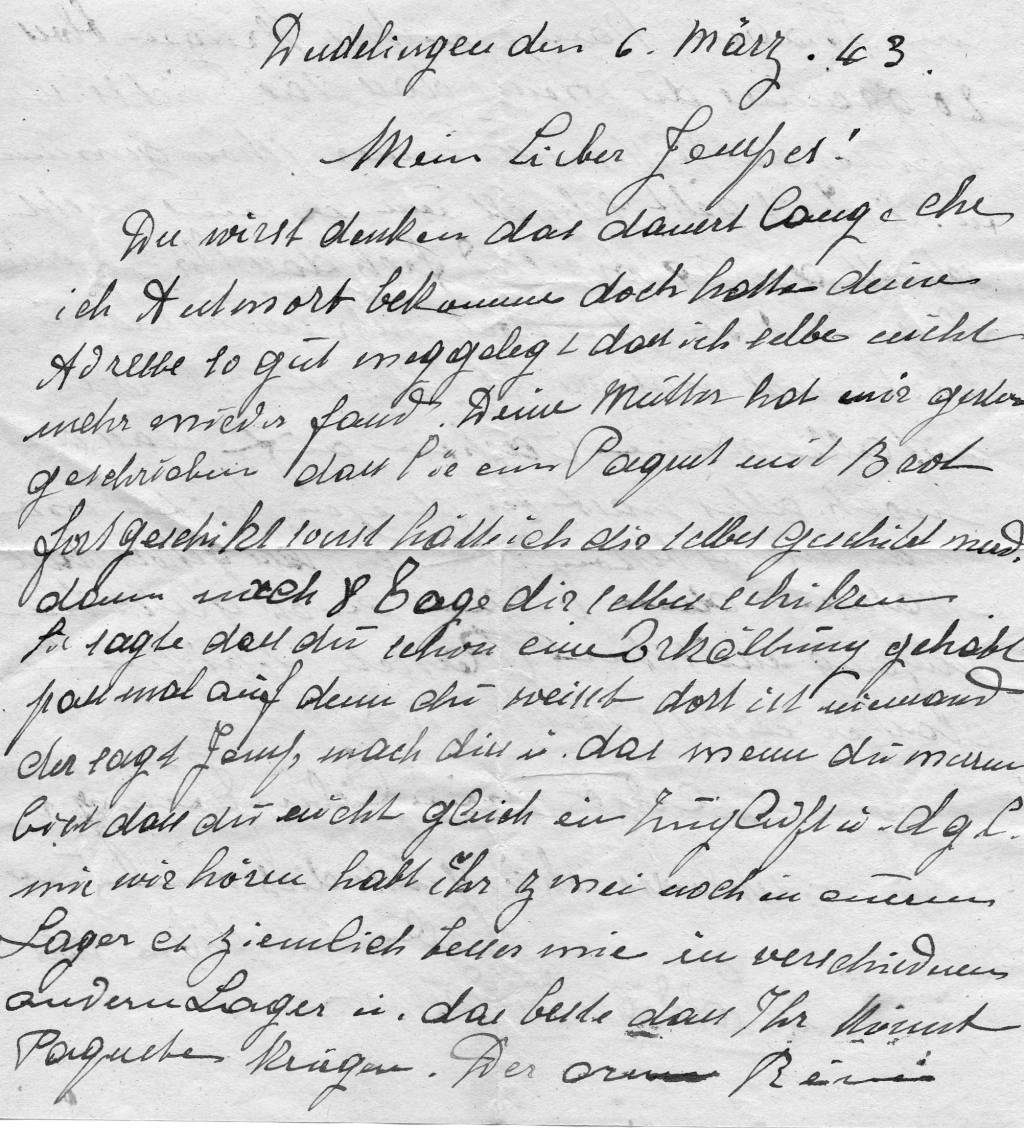 Dudelingen den 6. März. 43.
Mein Lieber Jempes!
Du wirst denken das dauert lange ehe
ich Antwort bekomme doch hatte deine
Adresse so gut weggelegt das ich selbe nicht
mehr wieder fand. Deine Mutter hat mir gestern
geschrieben dass Sie ein Paquet mit Brot
fortgeschikt sonst hätte ich dir selbes geschikt werd.
dann nach 8 Tage dir selbes schiken
Sie sagte dass du schon eine Erkältung gehabt
pass mal auf denn du weisst dort ist niemand
der sagt Jemp mach dies u. das wenn du warm
bist dass du nicht gleich in Zugluft u. dgl.
wie wir hören habt ihr zwei noch in eurem
Lager es ziemlich besser wie in verschiednen
andern Lager u. das beste dass Ihr könnt
Paquete kriegen. Der arme